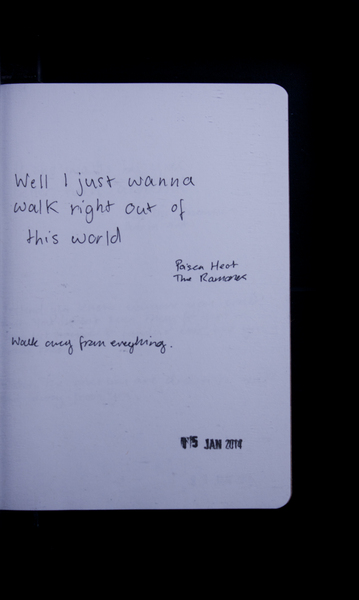 Well I just wanna
walk right out of
this world
Poison Heart
The Ramones
Walk away from everything.
15 JAN 2014